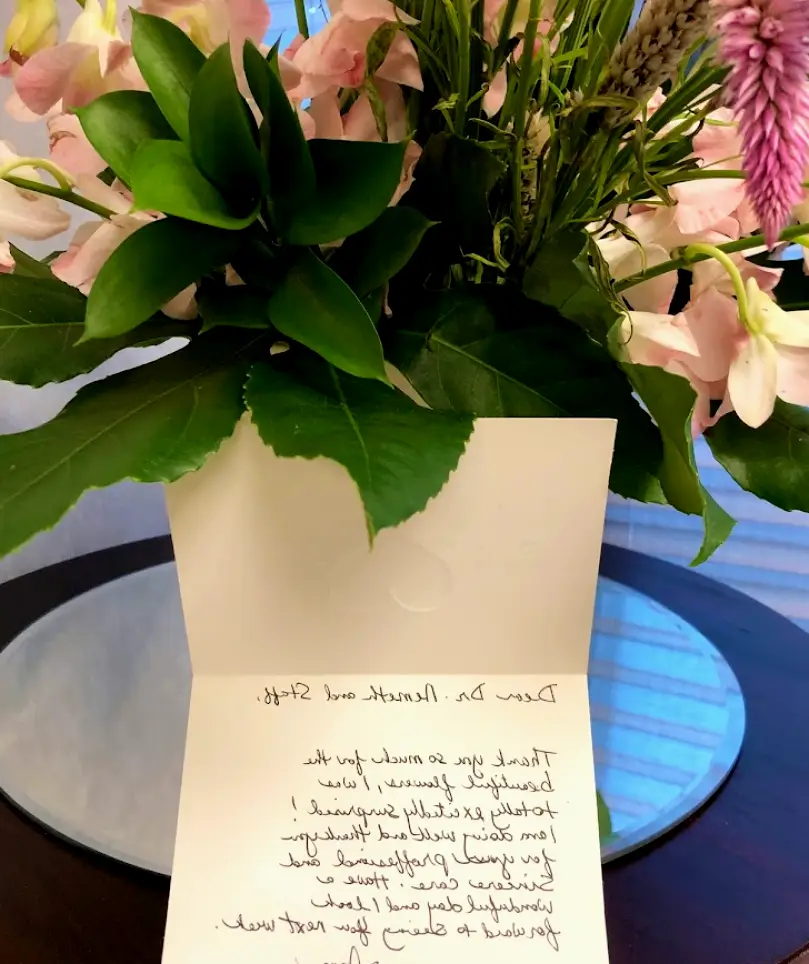 Dear Dr. Nemeth and Staff,
Thank you so much for the
beautiful flowers, I was
totally excitedly surprised!
I am doing well and thank you
for your proffessional and
Sincere care. Have a
wonderful day and I look
forward to seeing you next week.